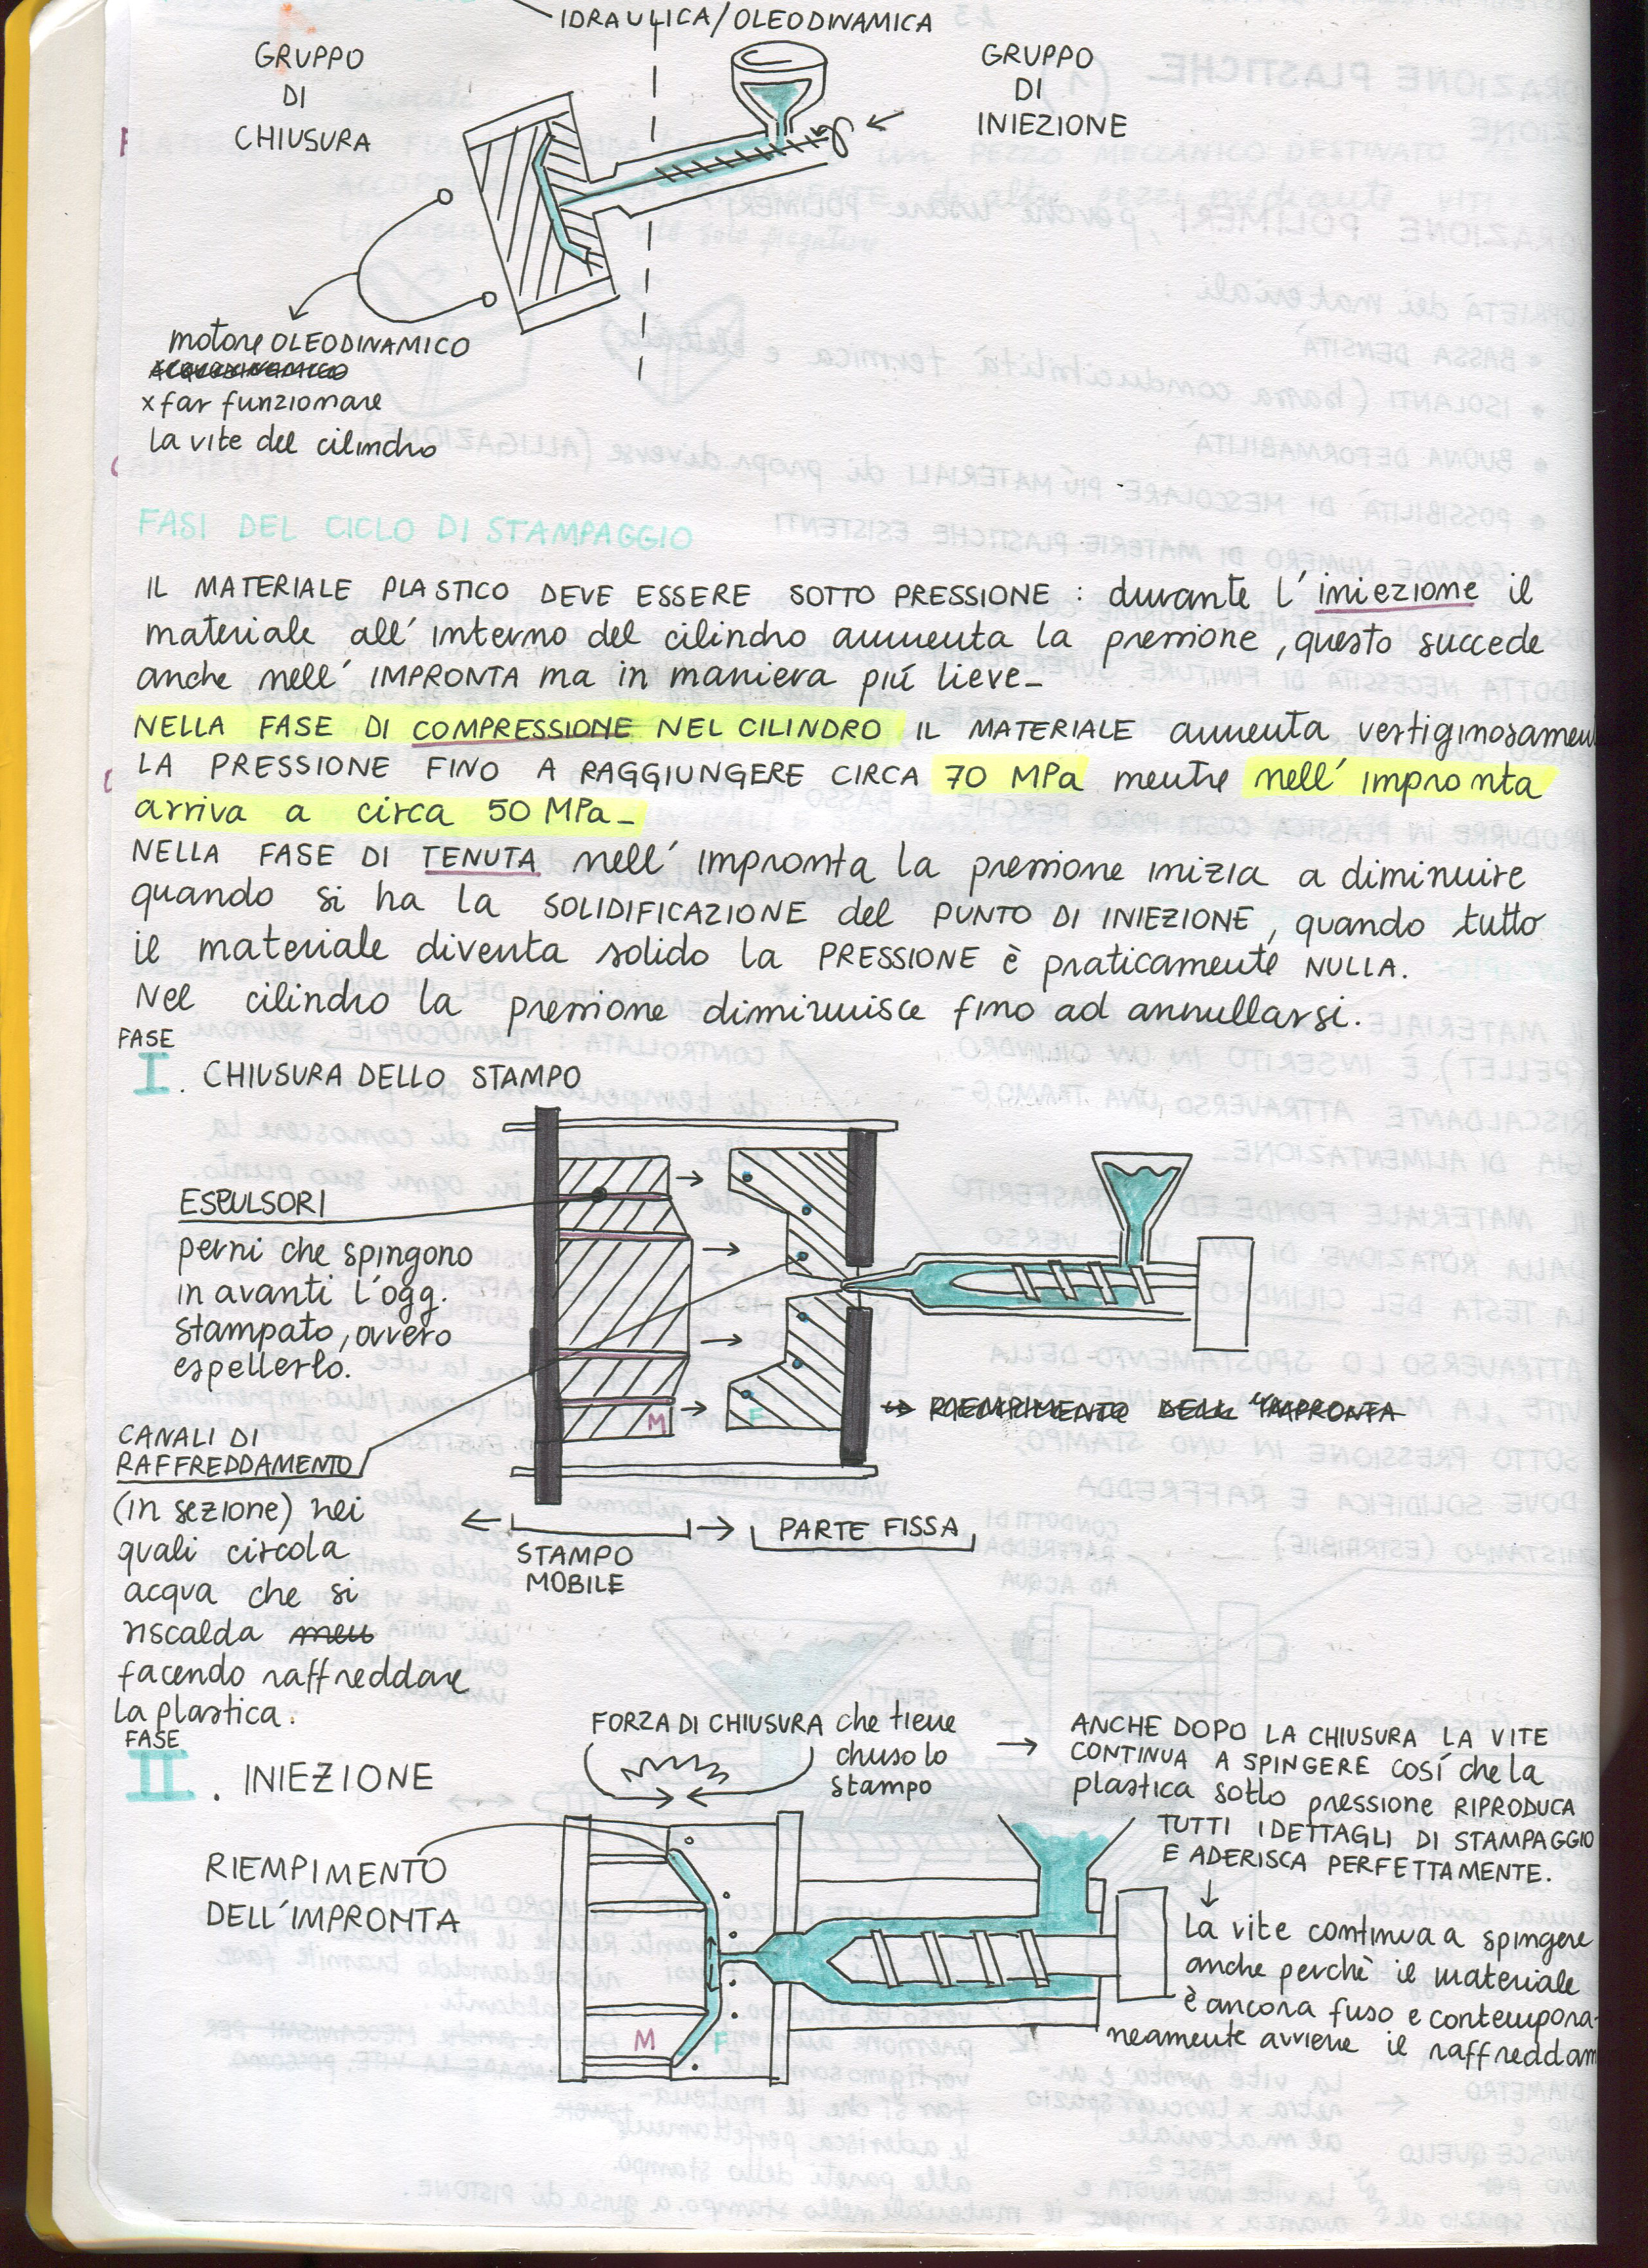 IDRAULICA/OLEODINAMICA
GRUPPO
DI
CHIUSURA
GRUPPO
DI
INIEZIONE
motore OLEODINAMICO
x far funzionare
la vite del cilindro
FASI DEL CICLO DI STAMPAGGIO
IL MATERIALE PLASTICO DEVE ESSERE SOTTO PRESSIONE : durante l'iniezione il
materiale all'interno del cilindro aumenta la pressione, questo succede
anche nell'IMPRONTA ma in maniera piú lieve_
NELLA FASE DI COMPRESSIONE NEL CILINDRO IL MATERIALE aumenta vertiginosamen
LA PRESSIONE FINO A RAGGIUNGERE CIRCA 70 MPa mentre nell'impronta
arriva a circa 50 MPa_
NELLA FASE DI TENUTA nell'impronta la pressione inizia a diminuire
quando si ha la SOLIDIFICAZIONE del PUNTO DI INIEZIONE, quando tutto
il materiale diventa solido la PRESSIONE è praticamente NULLA.
Nel cilindro la pressione diminuisce fino ad annullarsi.
FASE
I. CHIUSURA DELLO STAMPO
ESPULSORI
perni che spingono
in avanti l'ogg.
stampato, ovvero
espellerlo.
M
F
RIEMPIMENTO DELL'IMPRONTA
CANALI DI
RAFFREDDAMENTO
(in sezione) nei
quali circola
acqua che si
riscalda
facendo raffreddare
la plastica.
STAMPO
MOBILE
PARTE FISSA
FASE
II. INIEZIONE
FORZA DI CHIUSURA che tiene
chiuso lo
stampo
ANCHE DOPO LA CHIUSURA LA VITE
CONTINUA A SPINGERE COSÍ che la
plastica sotto pressione RIPRODUCA
TUTTI I DETTAGLI DI STAMPAGGIO
E ADERISCA PERFETTAMENTE.
RIEMPIMENTO
DELL'IMPRONTA
M
F
La vite continua a spingere
anche perchè il materiale
è ancora fuso e contempora-
neamente avviene il raffreddam